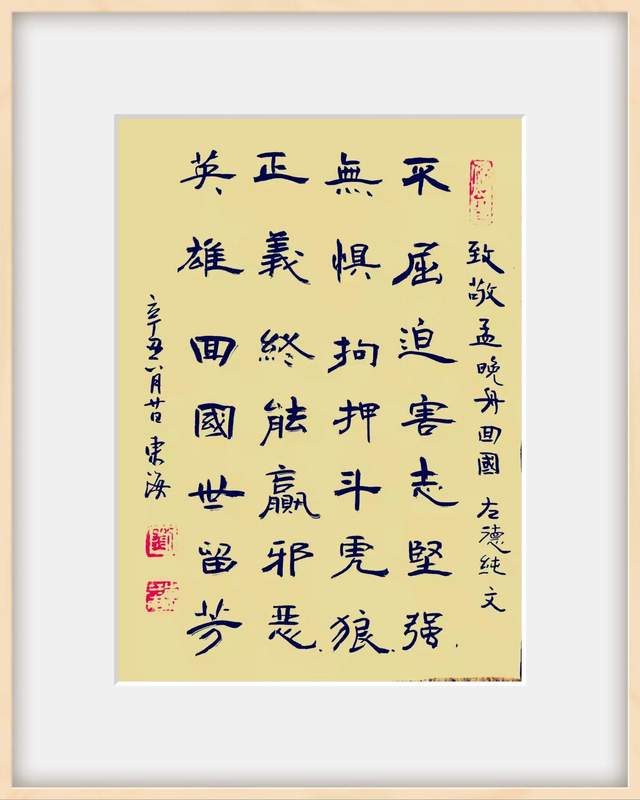 致敬孟晚舟回國 左德純文
不屈迫害志堅强
無懼拘押斗虎狼
正義終能贏邪恶
英雄回國世留芳
辛丑八月廿日東海